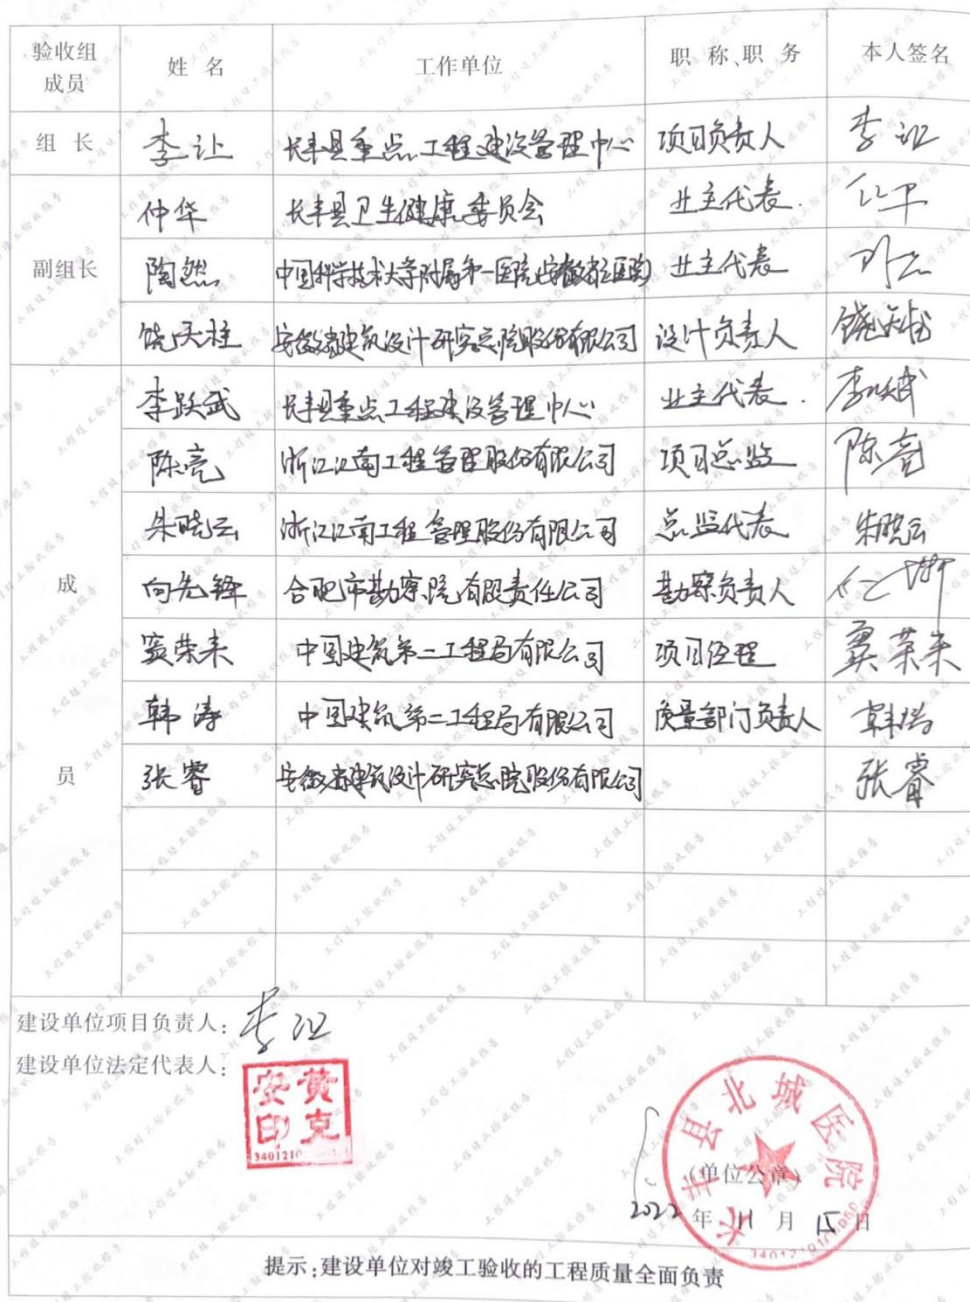 验收组成员 姓 名 工作单位 职 称、职 务 本人签名
组 长 李让 长丰县重点工程建设管理中心 项目负责人 李让
副组长 仲华 长丰县卫生健康委员会 业主代表.
陶然 中国科学技术大学附属第一医院(安徽省立医院) 业主代表
饶天柱 安徽省建筑设计研究总院股份有限公司 设计负责人 饶天柱
成员 李跃武 长丰县重点工程建设管理中心 业主代表. 李跃武
陈亮 浙江江南工程管理股份有限公司 项目总监 陈亮
朱晓云 浙江江南工程管理股份有限公司 总监代表 朱晓云
向先锋 合肥市勘察院有限责任公司 勘察负责人
窦荣来 中国建筑第二工程局有限公司 项目经理 窦荣来
韩涛 中国建筑第二工程局有限公司 质量部门负责人 韩涛
张睿 安徽省建筑设计研究总院股份有限公司 张睿
建设单位项目负责人: 李让
建设单位法定代表人:
黄克安印
长丰县北城医院
(单位公章)
2022 年 11 月 15 日
提示:建设单位对竣工验收的工程质量全面负责
工程竣工验收报告